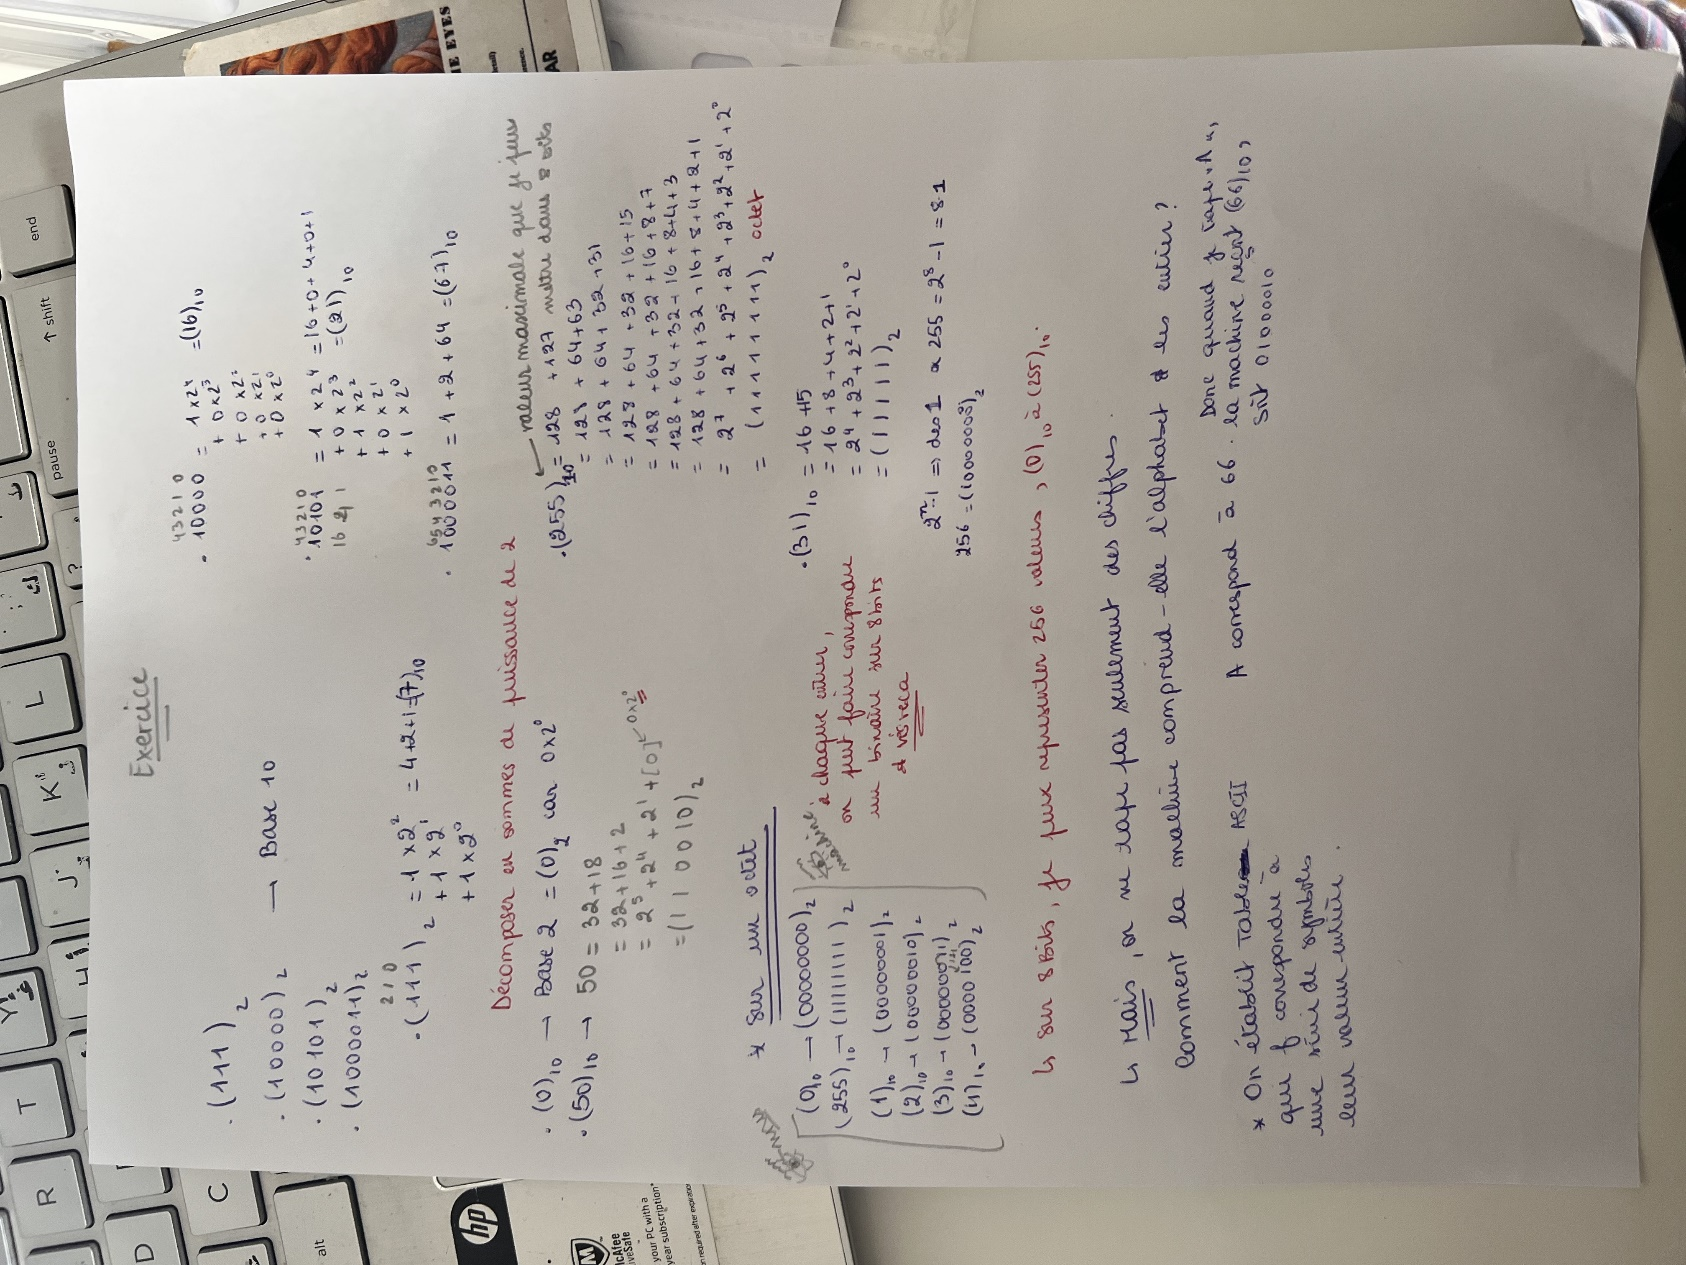 Exercice
. (111)₂
. (10000)₂ → Base 10
. (10101)₂
. (1000011)₂
2 1 0
. (111)₂ = 1 x 2² = 4+2+1=(7)₁₀
+ 1 x 2¹
+ 1 x 2⁰
4 3 2 1 0
. 10000 = 1 x 2⁴ = (16)₁₀
+ 0 x 2³
+ 0 x 2²
+ 0 x 2¹
+ 0 x 2⁰
4 3 2 1 0
. 10101 = 1 x 2 4 = 16+0+4+0+1
16 4 1 + 0 x 2³ = (21)₁₀
+ 1 x 2²
+ 0 x 2¹
+ 1 x 2⁰
6 5 4 3 2 1 0
. 1000011 = 1 + 2 + 64 = (67)₁₀
Décomposer en sommes de puissance de 2
. (0)₁₀ → Base 2 = (0)₂ car 0x2⁰
. (50)₁₀ → 50 = 32+18
= 32+16+2
= 2⁵ + 2⁴ + 2¹ + [0] ← 0x2⁰
= (1 1 0 0 1 0)₂
valeur maximale que je peux
mettre dans 8 bits
. (255)₁₀ = 128 + 127
= 128 + 64+63
= 128 + 64 + 32 +31
= 128 + 64 + 32 + 16 + 15
= 128 + 64 + 32 + 16 + 8 + 7
= 128 + 64 + 32 + 16 + 8+4+3
= 128 + 64 + 32 + 16 + 8 + 4 + 2 + 1
= 2⁷ + 2⁶ + 2⁵ + 2⁴ + 2³ + 2² + 2¹ + 2⁰
= (1 1 1 1 1 1 1 1)₂ octet
* sur un octet
(0)₁₀ → (00000000)₂
(255)₁₀ → (11111111)₂
(1)₁₀ → (00000001)₂
(2)₁₀ → (00000010)₂
(3)₁₀ → (00000011)₂
(4)₁₀ → (0000 100)₂
machine
à chaque entier,
on peut faire correspondre
un binaire sur 8 bits
et vis versa
. (31)₁₀ = 16 +15
= 16 + 8 + 4 + 2 + 1
= 2⁴ + 2³ + 2² + 2¹ + 2⁰
= (1 1 1 1 1)₂
2ⁿ-1 => des 1 a 255 = 2⁸ - 1 = 8.1
256 = (100000000)₂
↳ sur 8 Bits, je peux représenter 256 valeurs, (0)₁₀ à (255)₁₀.
↳ Mais, on ne tape pas seulement des chiffres.
Comment la machine comprend-elle l'alphabet et les entier?
* On établit Table ASCII
qui correspondre à
une série de symboles
leur valeur entière.
A correspond à 66. Donc quand je tape "A",
la machine reçoit (66)₁₀,
soit 01000010